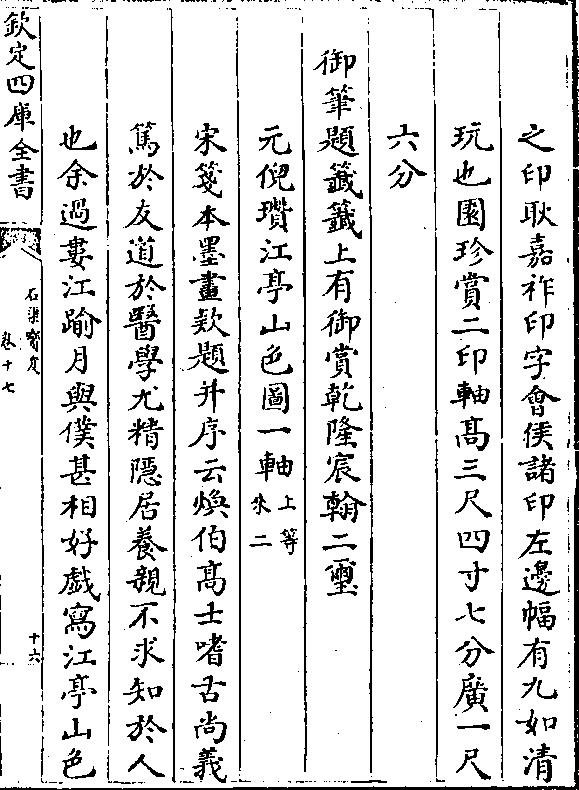 之印耿嘉祚印字會侯諸印左邊幅有九如清
玩也園珍賞二印軸高三尺四寸七分廣一尺
六分
御筆題籤籤上有御賞乾隆宸翰二璽
元倪瓚江亭山色圖一軸上等
氷二
宋箋本墨畫欵題并序云煥伯高士嗜古尚義
篤於友道於醫學尤精隱居養親不求知於人
也余過婁江踰月與僕甚相好戲寫江亭山色
欽定四庫全書
石渠寳笈
卷十七
十六